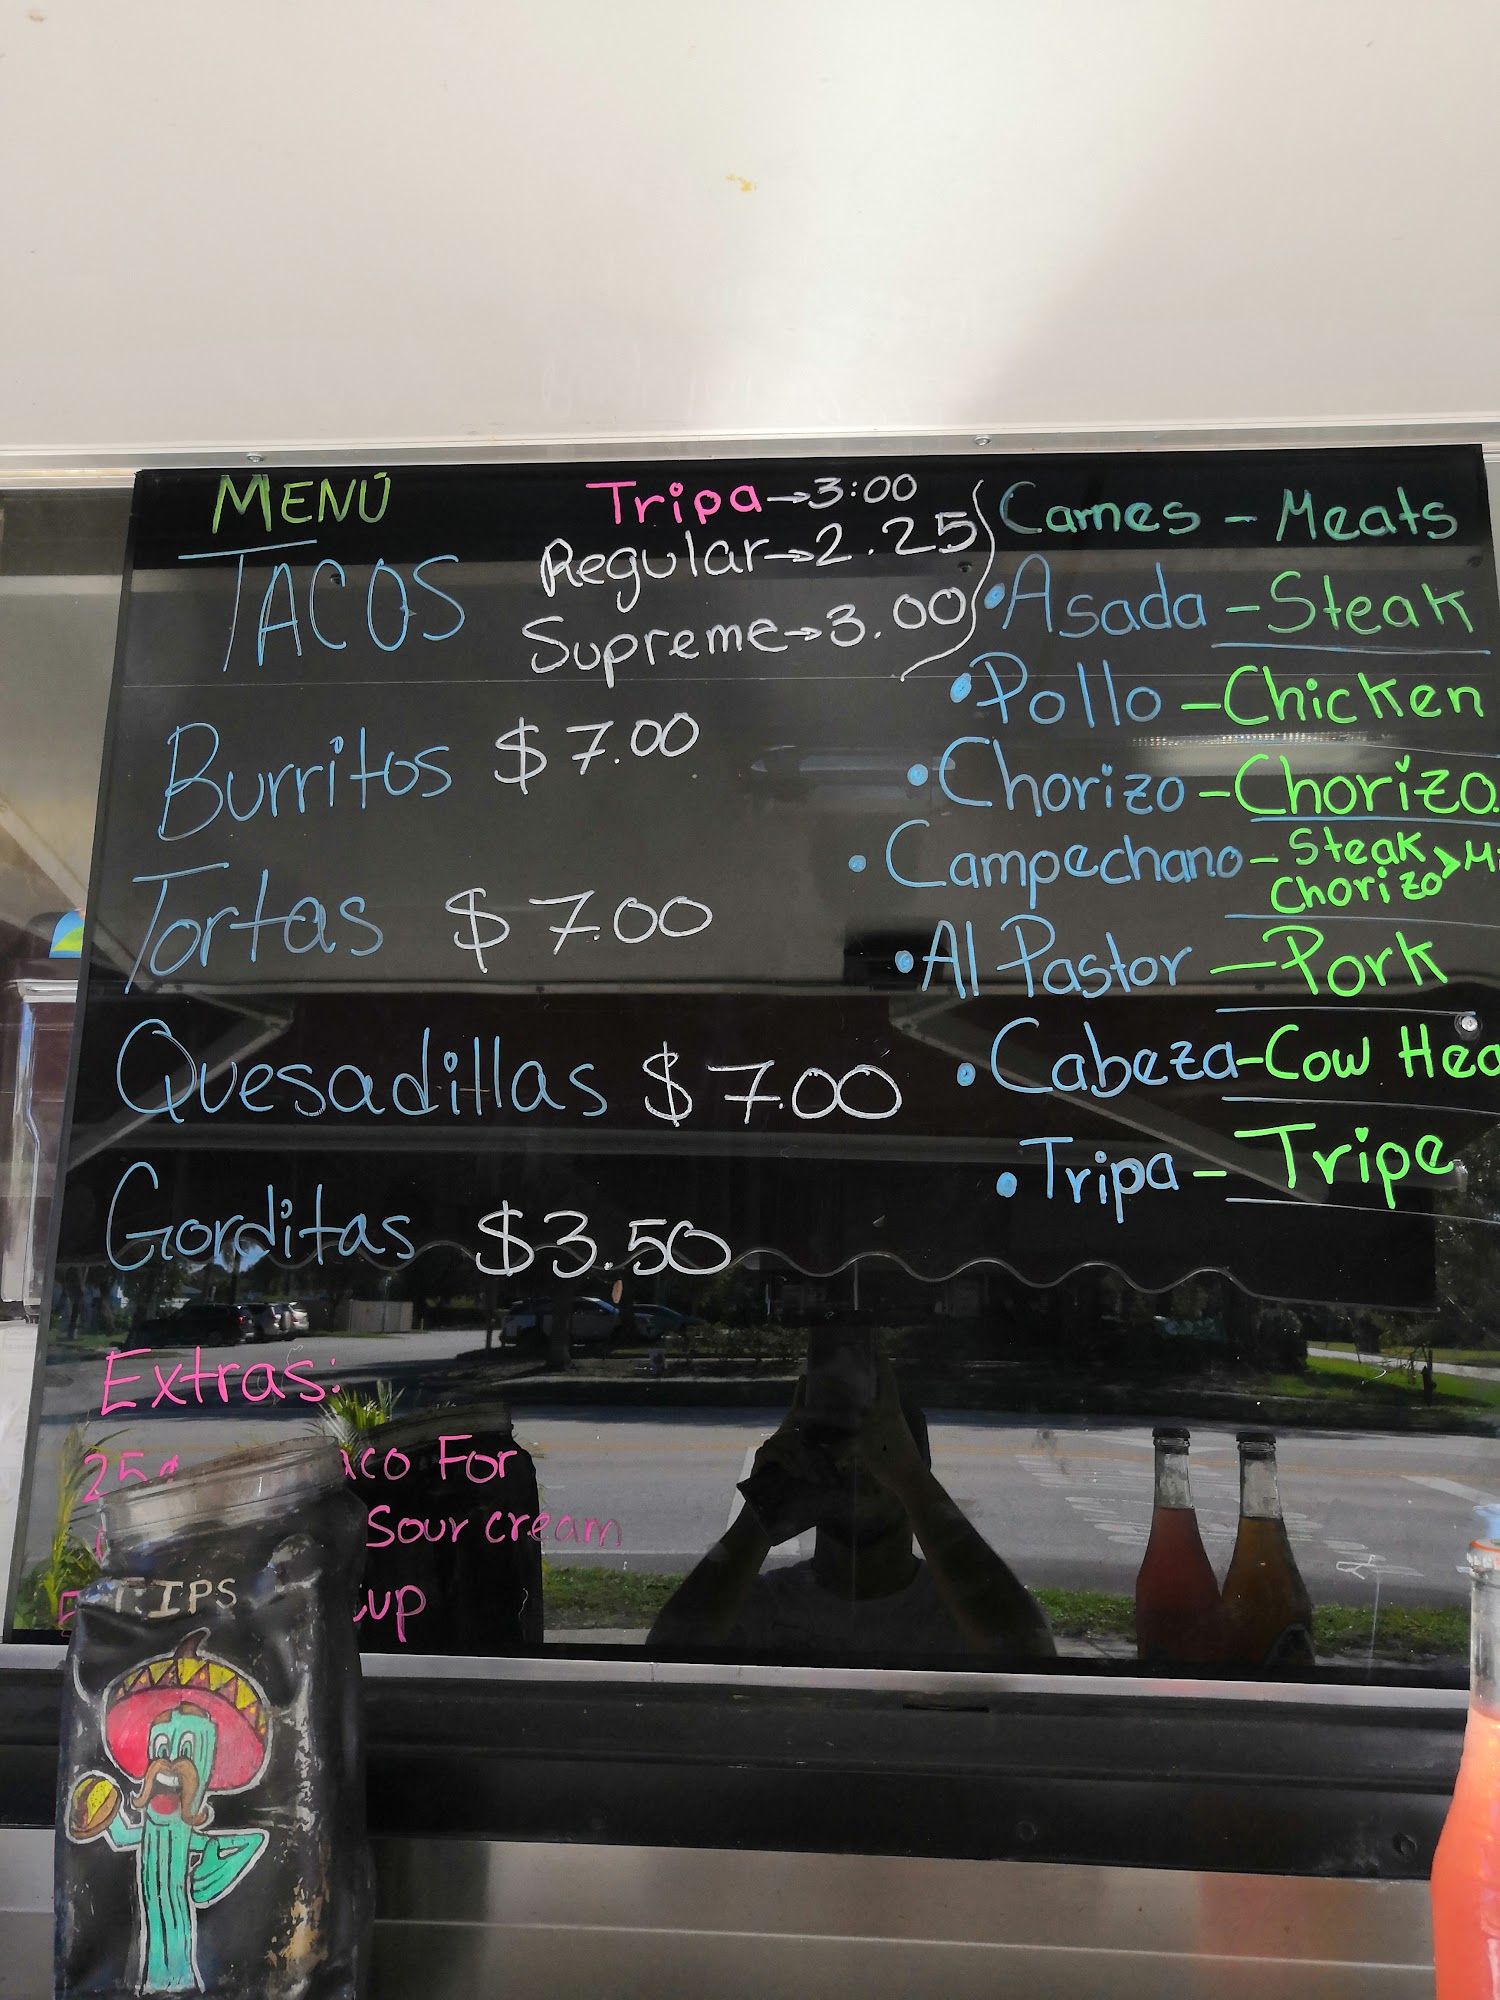 MENÚ
TACOS
Tripa→3:00
Regular→2.25
Supreme→3.00
Burritos $7.00
Tortas $7.00
Quesadillas $7.00
Gorditas $3.50
Extras:
25¢ For
Sour cream
TIPS
Carnes - Meats
• Asada - Steak
• Pollo - Chicken
• Chorizo - Chorizo
• Campechano - Steak
Chorizo >
• Al Pastor - Pork
• Cabeza - Cow
• Tripa - Tripe